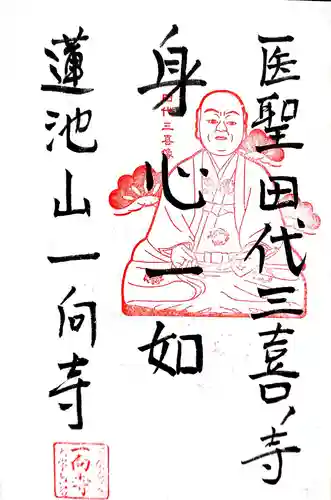 医聖田代三喜ノ寺
身心一如
田代三喜像
蓮池山一向寺
一向寺